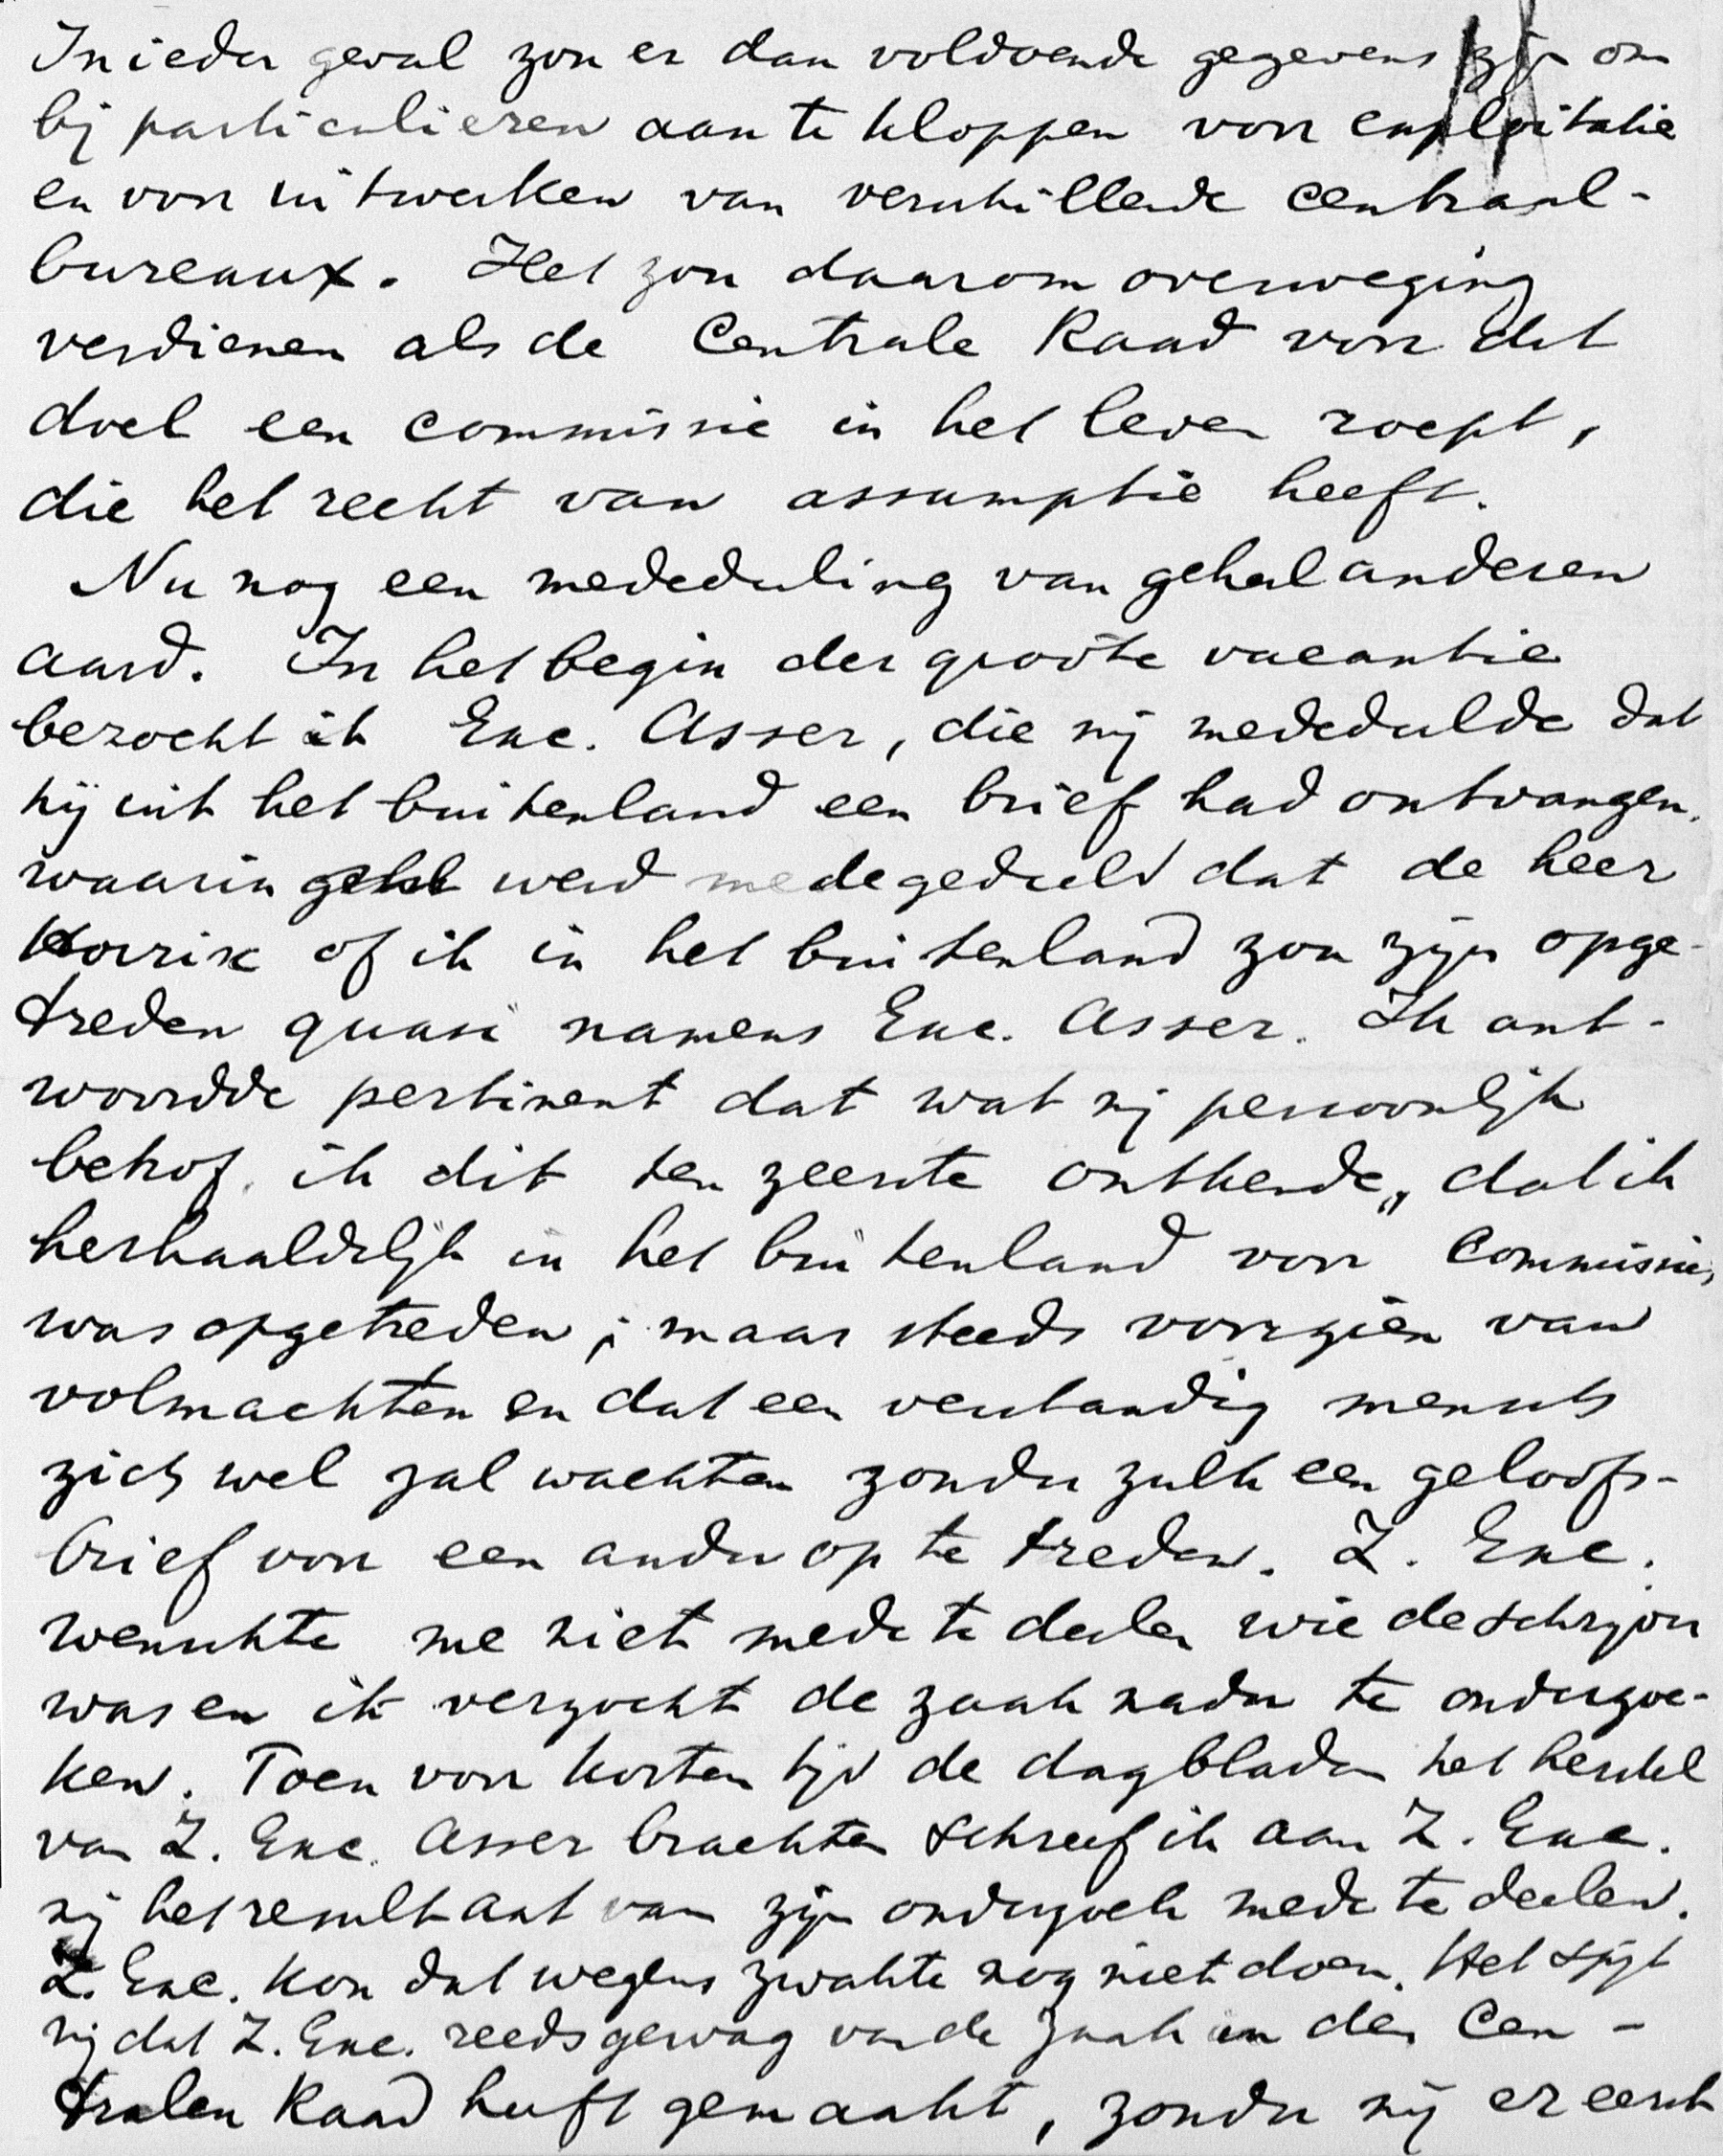 In ieder geval zou er dan voldoende gegevens zijn om
bij particulieren aan te kloppen voor exploitatie
en voor uitwerken van verschillende centraal-
bureaux. Het zou daarom overweging
verdienen als de Centrale Raad voor dat
doel een commissie in het leven roept,
die het recht van assumptie heeft.
Nu nog een mededeeling van geheel anderen
aard. In het begin der groote vacantie
bezocht ik Exc. Asser, die mij mededeelde dat
hij uit het buitenland een brief had ontvangen,
waarin werd medegedeeld dat de heer
of ik in het buitenland zou zijn opge-
treden quasi namens Exc. Asser. Ik ant-
woordde pertinent dat wat mij persoonlijk
betrof, ik dit ten zeerste ontkende, dat ik
herhaaldelijk in het buitenland voor Commissies
was opgetreden, maar steeds voorzien van
volmachten en dat een verstandig mensch
zich wel zal wachten zonder zulk een geloofs-
brief voor een ander op te treden. Z. Exc.
wenschte me niet mede te deelen wie de schrijver
was en ik verzocht de zaak nader te onderzoe-
ken. Toen voor korten tijd de dagbladen het herstel
van Z. Exc. Asser brachten schreef ik aan Z. Exc.
mij het resultaat van zijn onderzoek mede te deelen.
Z. Exc. kon dat wegens zwakte nog niet doen. Het spijt
mij dat Z. Exc. reeds gewag van de zaak in den Cen-
tralen Raad heeft gemaakt, zonder mij er eerst